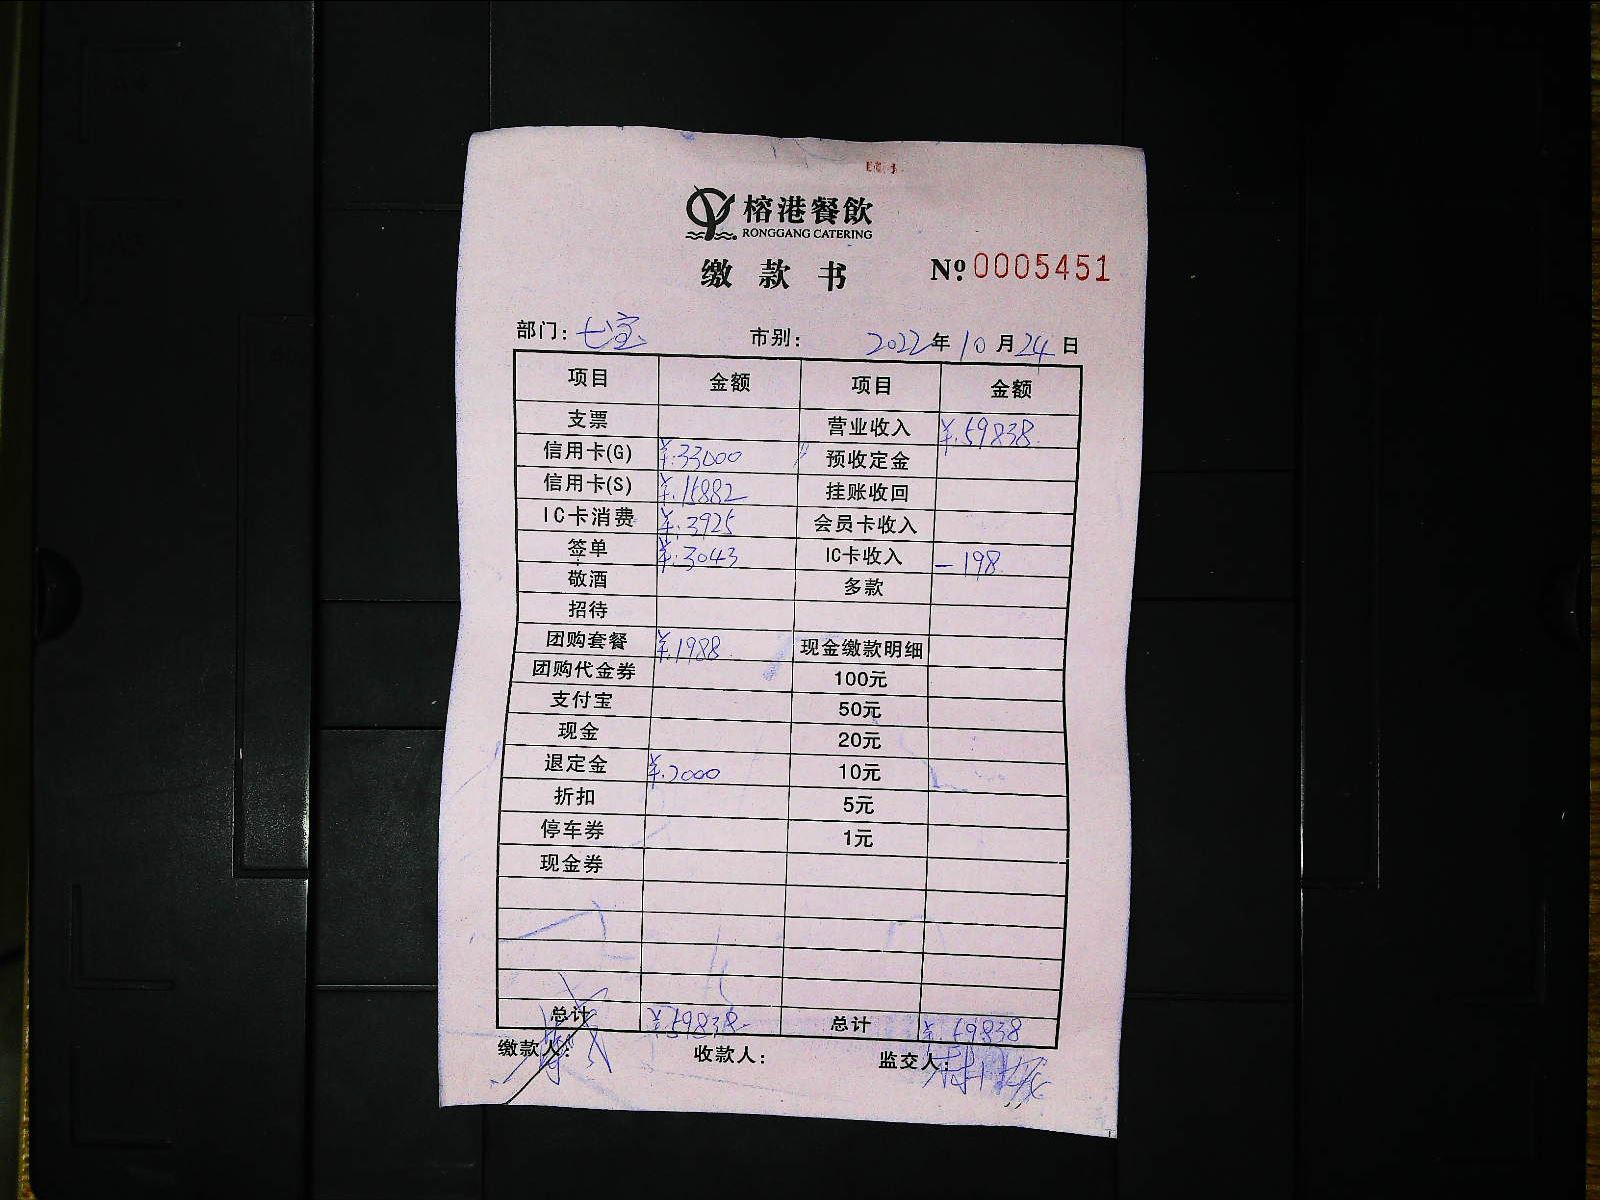 榕港餐飲
RONGGANG CATERING
缴款书 № 0005451
部门: 七宝 市别: 2022年10月24日
项目 金额 项目 金额
支票 营业收入 ¥.59838
信用卡(G) ¥.33000 预收定金
信用卡(S) ¥.15882 挂账收回
IC卡消费 ¥.3925 会员卡收入
签单 ¥.3043 IC卡收入 -198
敬酒 多款
招待
团购套餐 ¥.1988 现金缴款明细
团购代金券 100元
支付宝 50元
现金 20元
退定金 ¥.2000 10元
折扣 5元
停车券 1元
现金券
总计 ¥.59838 总计 ¥.59838
缴款人: 收款人: 监交人: